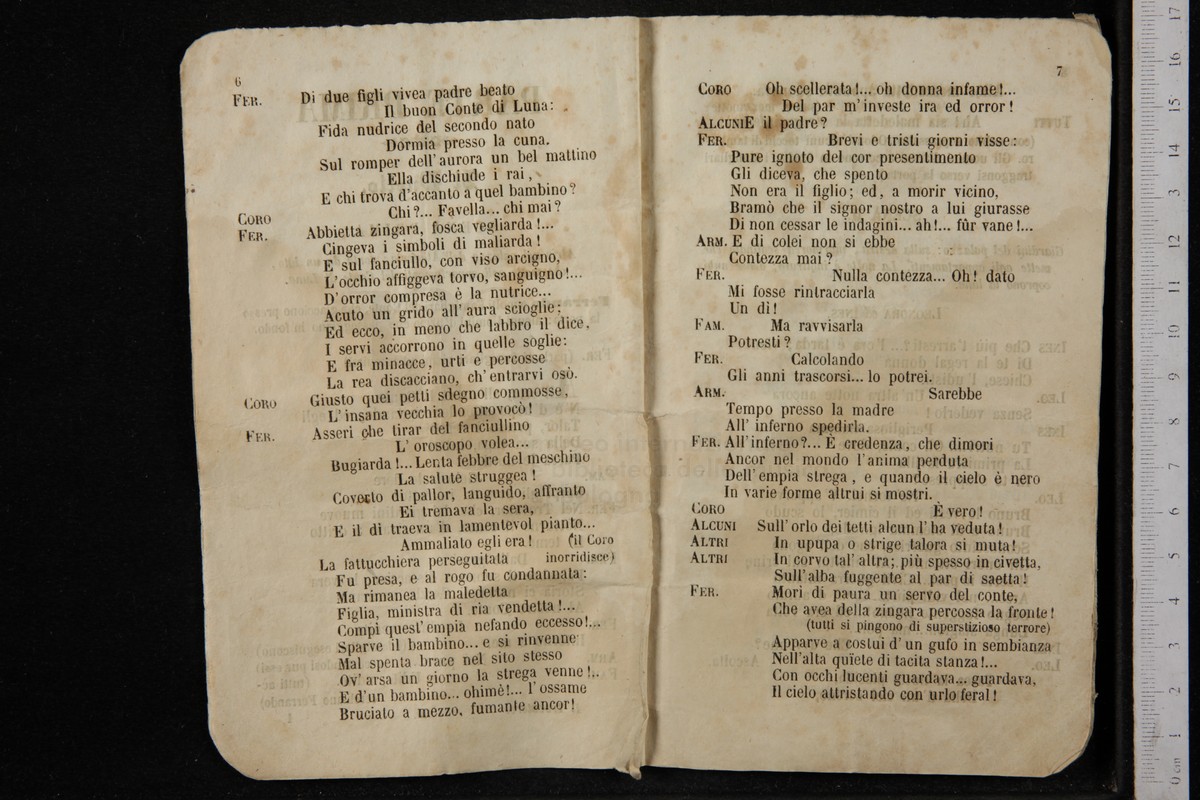 6
FER. Di due figli vivea padre beato
Il buon Conte di Luna:
Fida nudrice del secondo nato
Dormia presso la cuna.
Sul romper dell'aurora un bel mattino
Ella dischiude i rai,
E chi trova d'accanto a quel bambino?
CORO Chi?... Favella... chi mai?
FER. Abbietta zingara, fosca vegliarda!...
Cingeva i simboli di maliarda!
E sul fanciullo, con viso arcigno,
L'occhio affiggeva torvo, sanguigno!...
D'orror compresa è la nutrice...
Acuto un grido all'aura scioglie;
Ed ecco, in meno che labbro il dice,
I servi accorrono in quelle soglie:
E fra minacce, urti e percosse
La rea discacciano, ch'entrarvi osò.
CORO Giusto quei petti sdegno commosse,
L'insana vecchia lo provocò!
FER. Asserì che tirar del fanciullino
L'oroscopo volea...
Bugiarda!... Lenta febbre del meschino
La salute struggea!
Coverto di pallor, languido, affranto
Ei tremava la sera,
E il dì traeva in lamentevol pianto...
Ammaliato egli era! (il Coro
La fattucchiera perseguitata inorridisce)
Fu presa, e al rogo fu condannata:
Ma rimanea la maledetta
Figlia, ministra di ria vendetta!...
Compì quest'empia nefando eccesso!...
Sparve il bambino... e si rinvenne
Mal spenta brace nel sito stesso
Ov'arsa un giorno la strega venne!..
E d'un bambino... ohimè!... l'ossame
Bruciato a mezzo, fumante ancor!
7
CORO Oh scellerata!... oh donna infame!...
Del par m'investe ira ed orror!
ALCUNIE il padre?
FER. Brevi e tristi giorni visse:
Pure ignoto del cor presentimento
Gli diceva, che spento
Non era il figlio; ed, a morir vicino,
Bramò che il signor nostro a lui giurasse
Di non cessar le indagini... ah!... fûr vane!...
ARM. E di colei non si ebbe
Contezza mai?
FER. Nulla contezza... Oh! dato
Mi fosse rintracciarla
Un dì!
FAM. Ma ravvisarla
Potresti?
FER. Calcolando
Gli anni trascorsi... lo potrei.
ARM. Sarebbe
Tempo presso la madre
All'inferno spedirla.
FER. All'inferno?... È credenza, che dimori
Ancor nel mondo l'anima perduta
Dell'empia strega, e quando il cielo è nero
In varie forme altrui si mostri.
CORO È vero!
ALCUNI Sull'orlo dei tetti alcun l'ha veduta!
ALTRI In upupa o strige talora si muta!
ALTRI In corvo tal'altra; più spesso in civetta,
Sull'alba fuggente al par di saetta!
FER. Morì di paura un servo del conte,
Che avea della zingara percossa la fronte!
(tutti si pingono di superstizioso terrore)
Apparve a costui d'un gufo in sembianza
Nell'alta quïete di tacita stanza!...
Con occhi lucenti guardava... guardava,
Il cielo attristando con urlo feral!